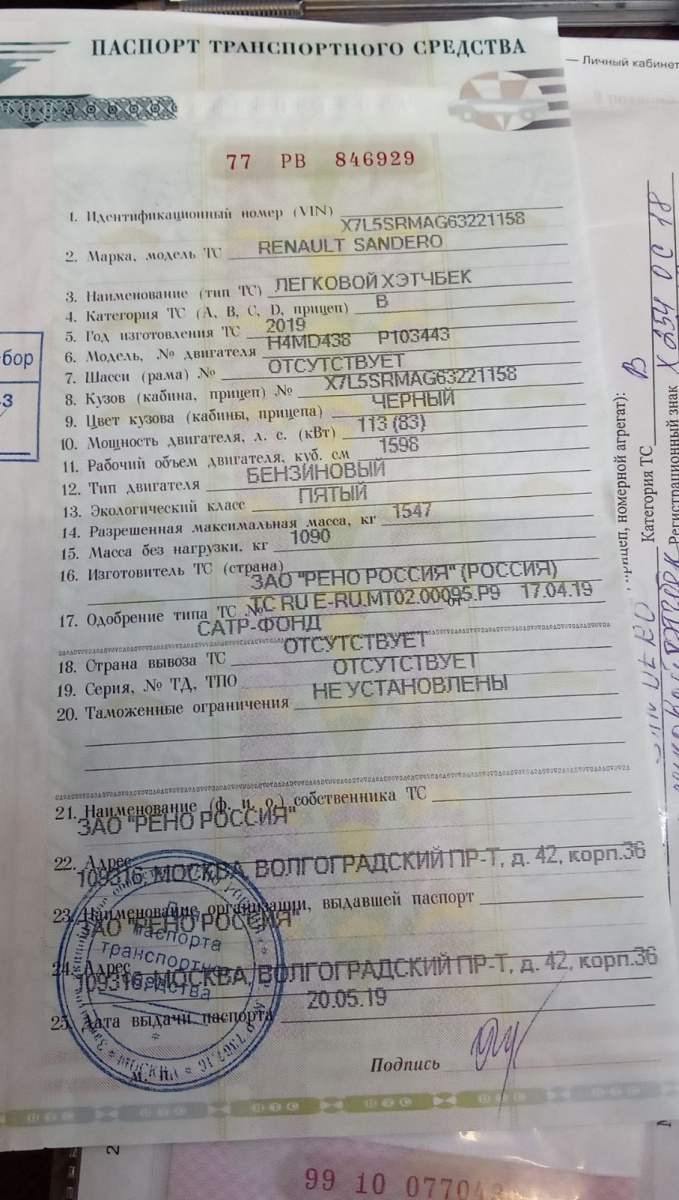 ПАСПОРТ ТРАНСПОРТНОГО СРЕДСТВА
— Личный кабинет
77 РВ 846929
1. Идентификационный номер (VIN) X7L5SRMAG63221158
2. Марка, модель ТС RENAULT SANDERO
3. Наименование (тип ТС) ЛЕГКОВОЙ ХЭТЧБЕК
4. Категория ТС (A, B, C, D, прицеп) B
5. Год изготовления ТС 2019
6. Модель, № двигателя H4MD438 P103443
7. Шасси (рама) № ОТСУТСТВУЕТ
8. Кузов (кабина, прицеп) № X7L5SRMAG63221158
9. Цвет кузова (кабины, прицепа) ЧЕРНЫЙ
10. Мощность двигателя, л. с. (кВт) 113 (83)
11. Рабочий объем двигателя, куб. см 1598
12. Тип двигателя БЕНЗИНОВЫЙ
13. Экологический класс ПЯТЫЙ
14. Разрешенная максимальная масса, кг 1547
15. Масса без нагрузки, кг 1090
16. Изготовитель ТС (страна)
ЗАО "РЕНО РОССИЯ" (РОССИЯ)
17. Одобрение типа ТС № ТС RU E-RU.MT02.00095.P9 от 17.04.19
САТР-ФОНД
18. Страна вывоза ТС ОТСУТСТВУЕТ
19. Серия, № ТД, ТПО ОТСУТСТВУЕТ
20. Таможенные ограничения НЕ УСТАНОВЛЕНЫ
21. Наименование (ф. и. о.) собственника ТС
ЗАО "РЕНО РОССИЯ"
22. Адрес
109316, МОСКВА, ВОЛГОГРАДСКИЙ ПР-Т, д. 42, корп.36
23. Наименование организации, выдавшей паспорт
ЗАО "РЕНО РОССИЯ"
24. Адрес
109316, МОСКВА, ВОЛГОГРАДСКИЙ ПР-Т, д. 42, корп.36
25. Дата выдачи паспорта 20.05.19
Подпись
М. П.
Для
паспорта
транспортного
средства
МОСКВА
бор
3
номерной агрегат):
Категория ТС B
Регистрационный знак Х 254 ОС 18
SANDERO
ПТС ПТС ПТС ПТС
2
99 10 07704